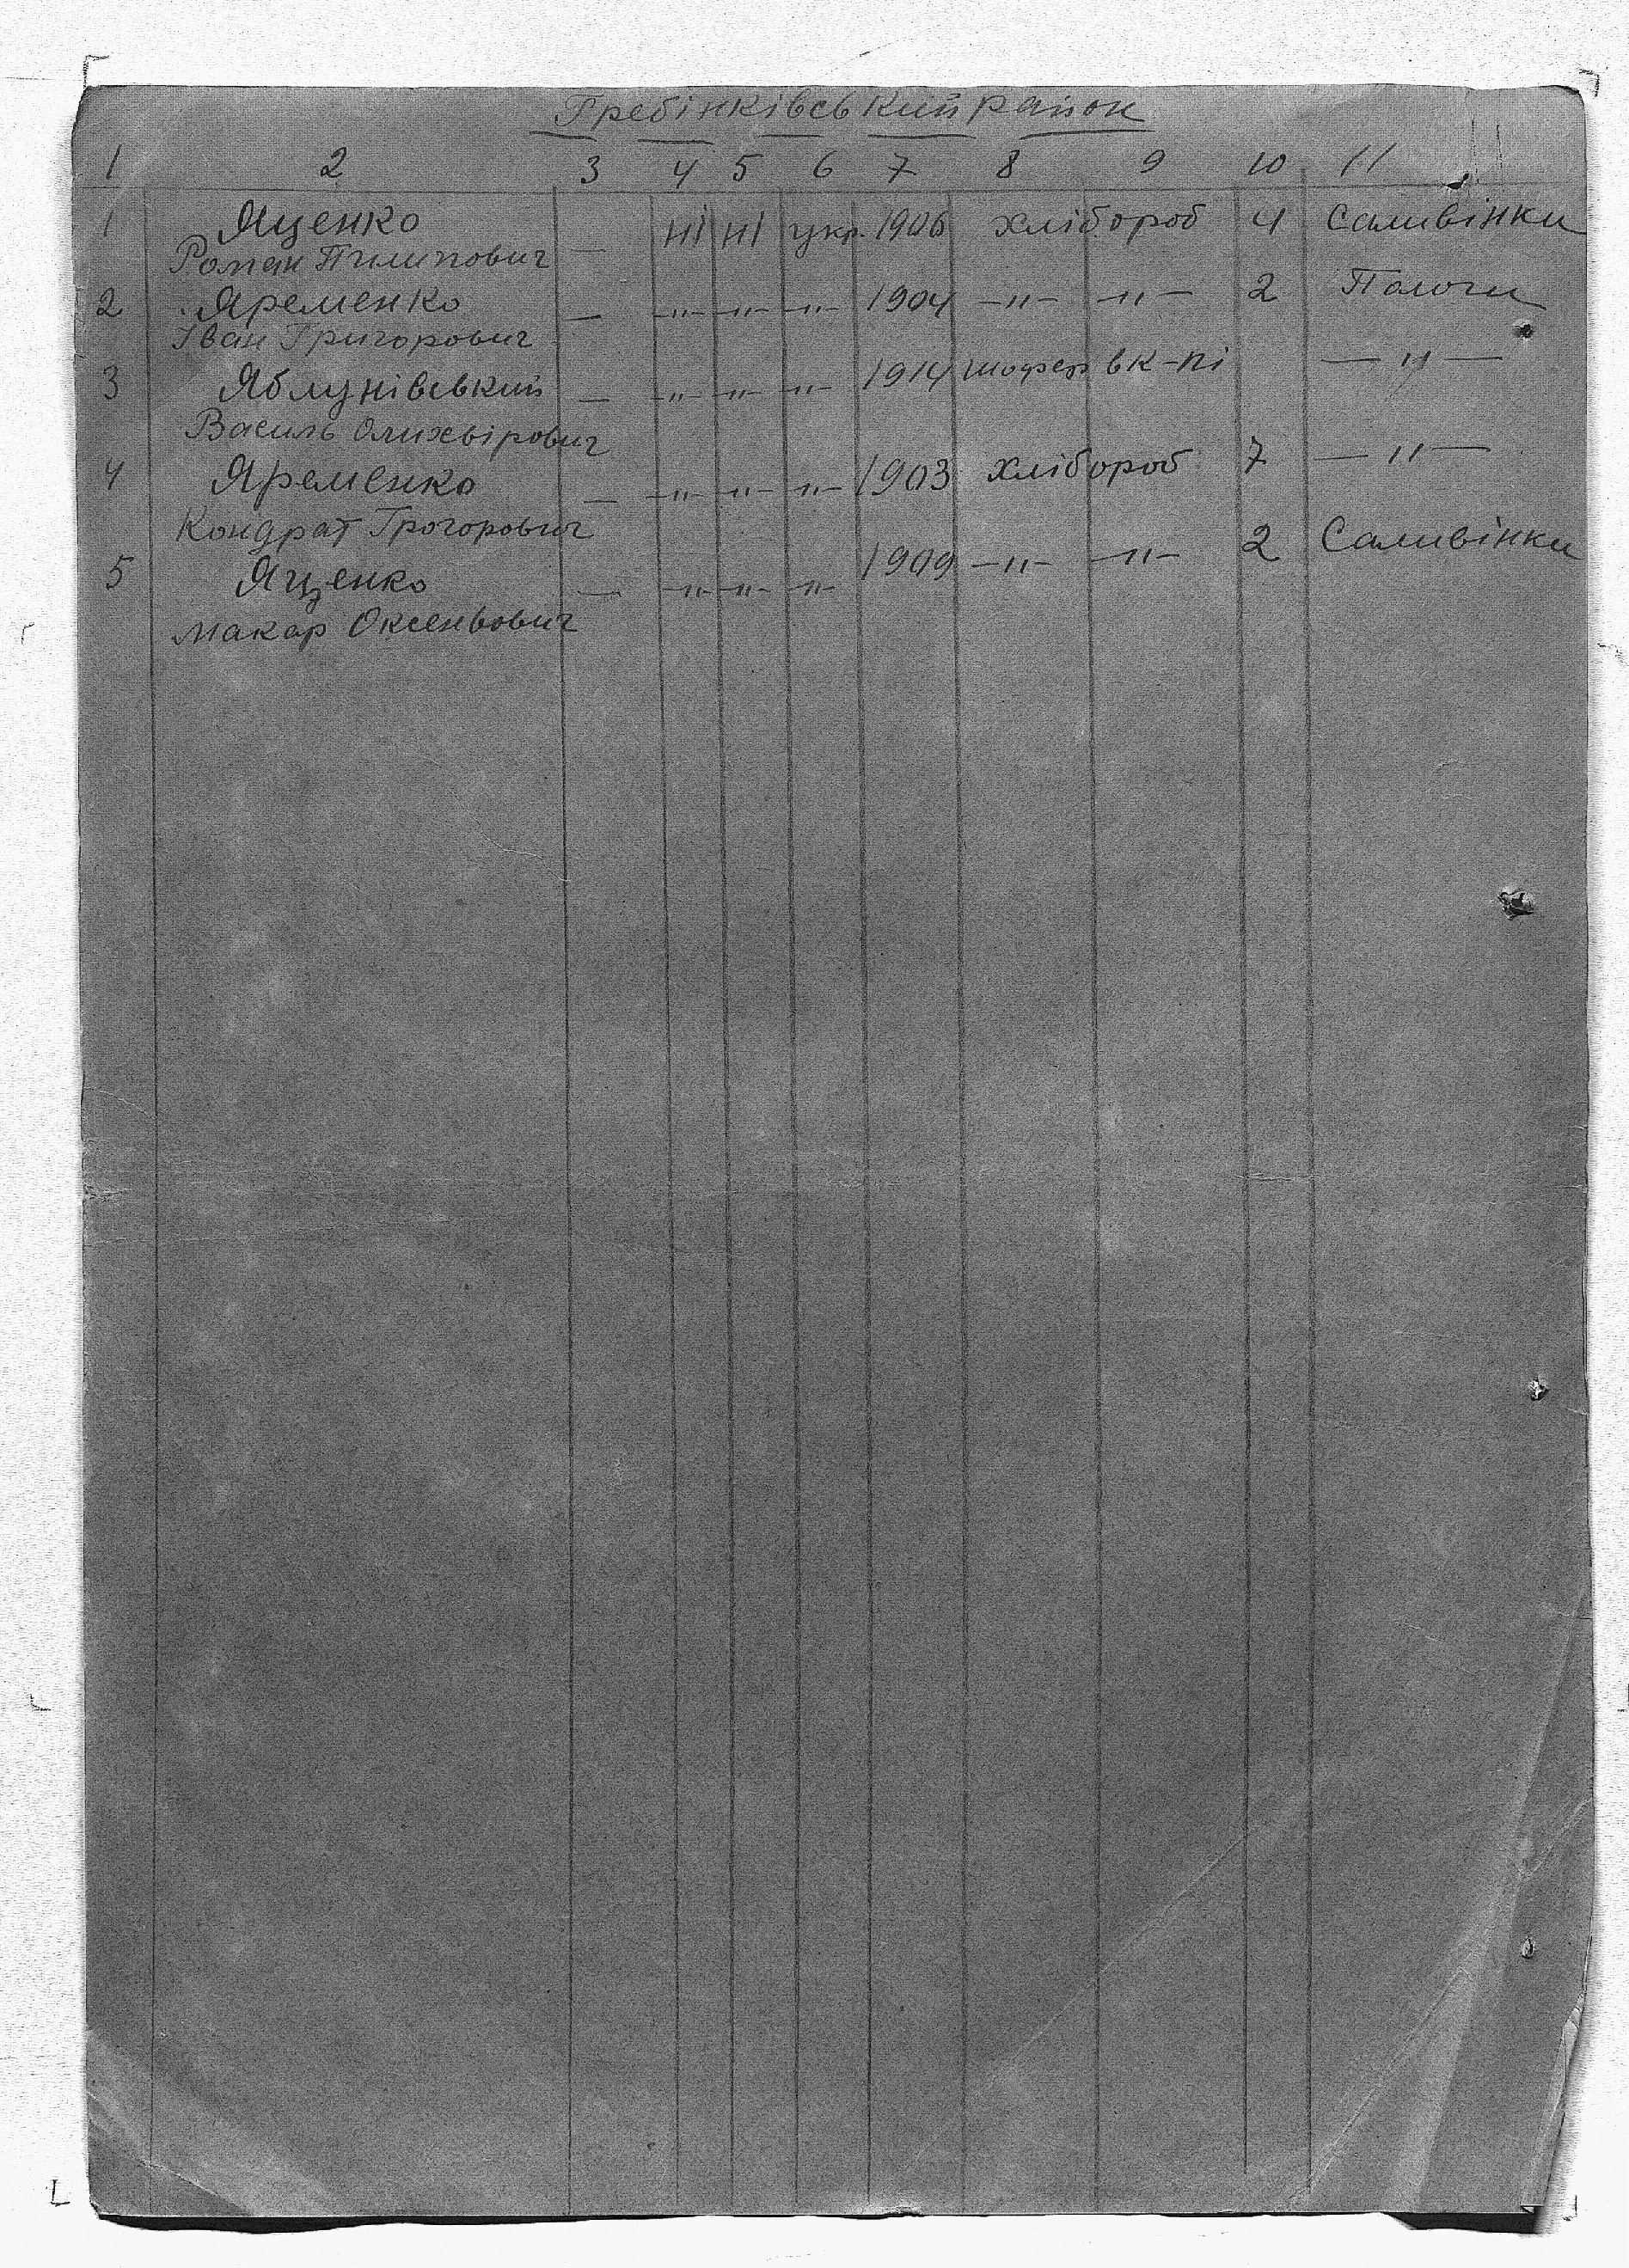 Гребінківський район
1 2 3 4 5 6 7 8 9 10 11
1 Яценко — ні ні укр. 1906 хлібороб 4 Саливінки
Роман Пилипович
2 Яременко — —"— —"— —"— 1904 —"— —"— 2 Пологи
Іван Григорович
3 Яблунівський — —"— —"— —"— 1914 шофер в к-пі —"—
Василь Олихвірович
4 Яременко — —"— —"— —"— 1903 хлібороб 7 —"—
Кондрат Грогорович
5 Яценко — —"— —"— —"— 1909 —"— —"— 2 Саливінки
Макар Оксеньович